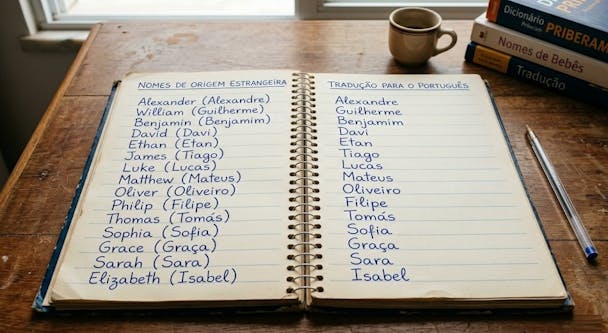 NOMES DE ORIGEM ESTRANGEIRA
Alexander (Alexandre)
William (Guilherme)
Benjamin (Benjamim)
David (Davi)
Ethan (Etan)
James (Tiago)
Luke (Lucas)
Matthew (Mateus)
Oliver (Oliveiro)
Philip (Filipe)
Thomas (Tomás)
Sophia (Sofia)
Grace (Graça)
Sarah (Sara)
Elizabeth (Isabel)
TRADUÇÃO PARA O PORTUGUÊS
Alexandre
Guilherme
Benjamim
Davi
Etan
Tiago
Lucas
Mateus
Oliveiro
Filipe
Tomás
Sofia
Graça
Sara
Isabel
Dicionário
Priberam PRIBERAM
Nomes de Bebês
Tradução